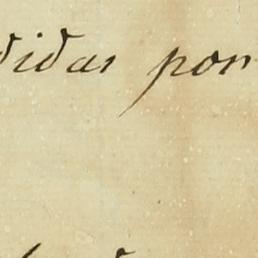 didas por